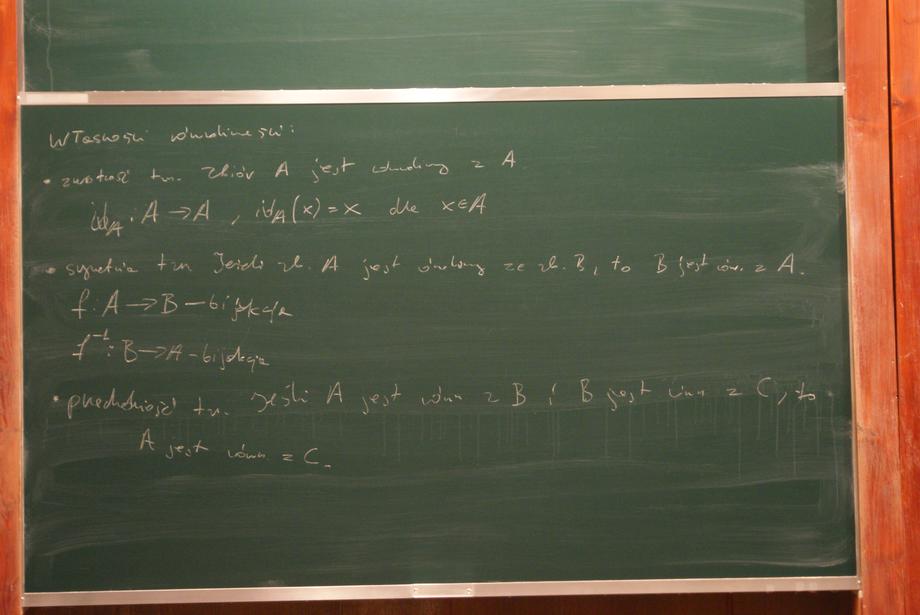 Własności równoliczności:
• zwrotność tzn. Zbiór A jest równoliczny z A
id_A : A → A , id_A(x) = x dla x ∈ A
• symetria tzn Jeżeli zb. A jest równoliczny ze zb. B, to B jest rów. z A.
f : A → B – bijekcja
f⁻¹ : B → A – bijekcja
• przechodniość tzn. Jeśli A jest równ z B i B jest równ z C, to
A jest równ. z C.